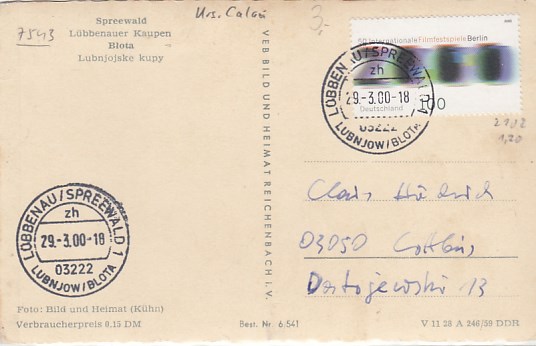 Spreewald
Lübbenauer Kaupen
Błota
Lubnjojske kupy
7543
3,-
VEB BILD UND HEIMAT REICHENBACH I. V.
50 Internationale Filmfestspiele Berlin
Deutschland
100
LÜBBENAU/SPREEWALD 1
zh
29.-3.00-18
03222
LUBNJOW/BLOTA
1,20
03050 Cottbus
13
LÜBBENAU/SPREEWALD 1
zh
29.-3.00-18
03222
LUBNJOW/BLOTA
Foto: Bild und Heimat (Kühn)
Verbraucherpreis 0,15 DM
Best. Nr 6.541
V 11 28 A 246/59 DDR